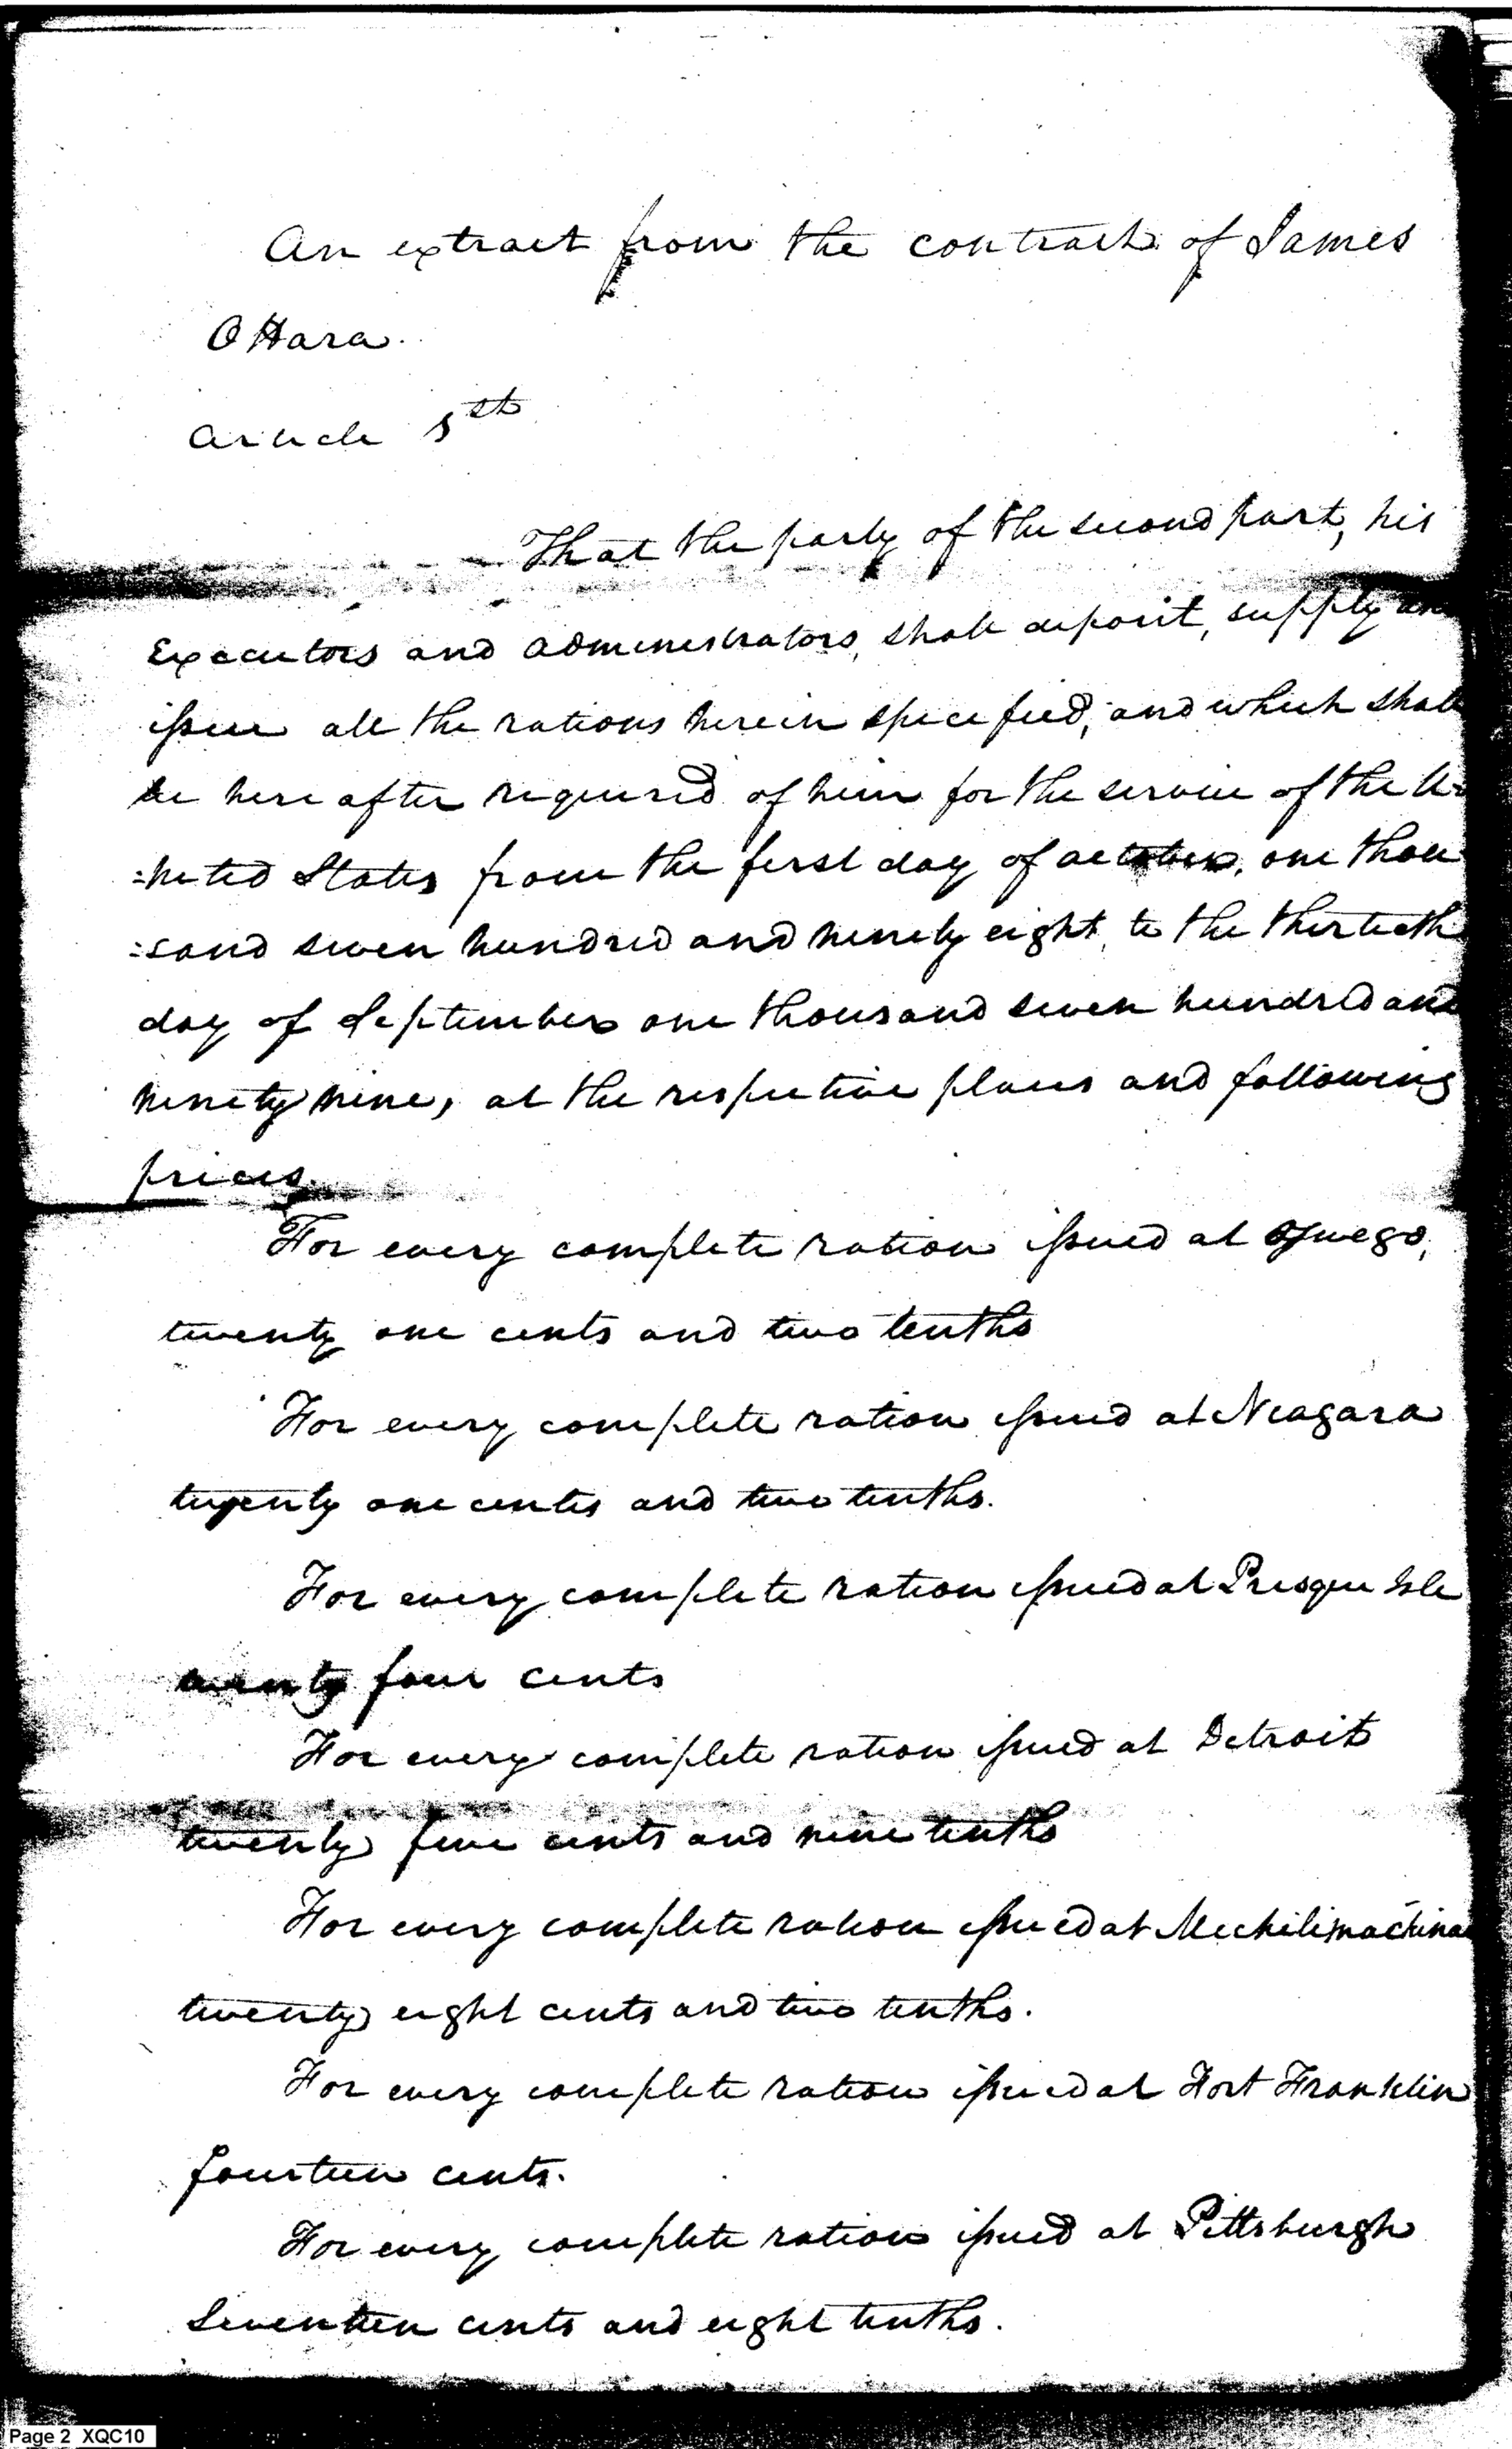 An extract from the contract of James
O Hara.
Article 1st
That the party of the second part, his
Executors and administrators, shall deposit, supply and
issue all the rations herein specified, and which shall
be here after required of him for the service of the U=
=nited States from the first day of october, one thou
=sand seven hundred and ninety eight, to the thirtieth
day of September one thousand seven hundred and
ninety nine, at the respective places and following
prices.
For every complete ration issued at Oswego,
twenty one cents and two tenths
For every complete ration issued at Niagara
twenty one cents and two tenths.
For every complete ration issued at Presque Isle
twenty four cents
For every complete ration issued at Detroit
twenty five cents and nine tenths
For every complete ration issued at Michilimackinac
twenty eight cents and two tenths.
For every complete ration issued at Fort Franklin
fourteen cents.
For every complete ration issued at Pittsburgh
Seventeen cents and eight tenths.
Page 2 XQC10